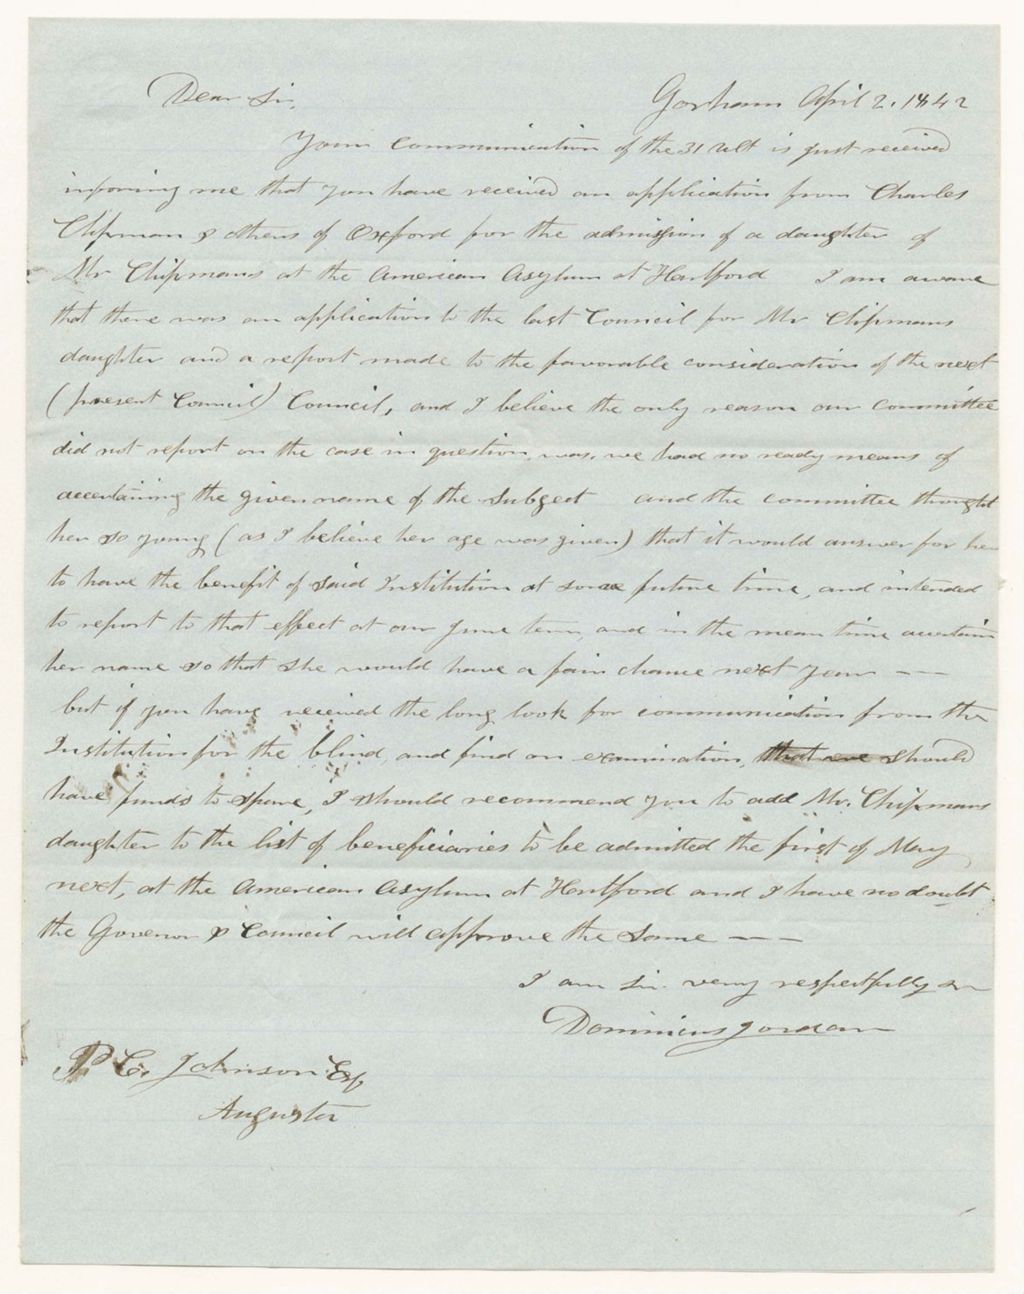 Dear Sir, Gorham April 2. 1842
Your Communication of the 31 Ult is just received
informing me that you have received an application from Charles
Chipman & others of Oxford for the admission of a daughter of
Mr Chipmans at the American Asylum at Hartford I am aware
that there was an application to the last Council for Mr Chipmans
daughter and a report made to the favorable consideration of the next
(present Council) Council, and I believe the only reason our Committee
did not report on the case in question, was, we had no ready means of
ascertaining the given name of the Subject and the committee thought
her so young (as I believe her age was given) that it would answer for her
to have the benefit of said Institution at some future time, and intended
to report to that effect at our June term, and in the mean time ascertain
her name so that she would have a fair chance next year — —
but if you have received the long look for communication from the
Institution for the blind, and find on examination, that we should
have funds to spare, I should recommend you to add Mr. Chipmans
daughter to the list of beneficiaries to be admitted the first of May
next, at the American Asylum at Hartford and I have no doubt
the Governor & Council will approve the same — —
I am Sir. very respectfully &c
Dominicus Jordan
P. C. Johnson Esq
Augusta